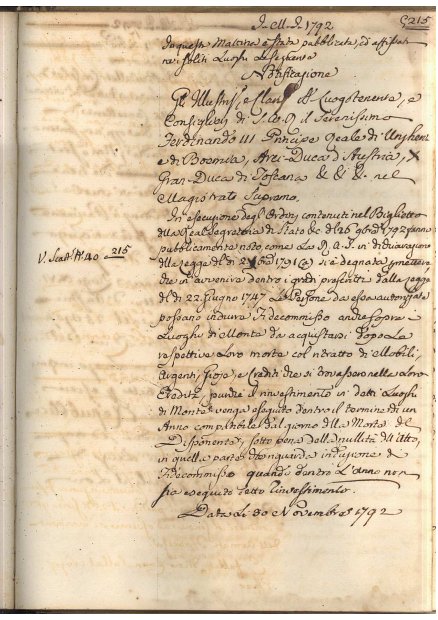 1792
C 215
In questa Mattina è stata pubblicata, ed affissa
ne i soliti Luoghi la seguente
Notificazione
Gl' Illustriss. e Clariss. Luogotenente, e
Consiglieri di S. A. R. il Serenissimo
Ferdinando III Principe Reale di Ungheria
e di Boemia, Arci-Duca d'Austria,
Gran-Duca di Toscana &. &. &. nel
Magistrato Supremo.
In esecuzione degl'Ordini contenuti nel Biglietto
della Real Segreteria di Stato de 26 9bre 1792 fanno
pubblicamente noto, come La R. A. S. in dichiarazione
della Legge del dì 1791 si è degnata permettere
che in avvenire dentro i gradi prescritti dalla Legge
del dì 22. Giugno 1747 Le Persone da essa autorizzate
V. Scatt.ª N.º 40 e 215
possano indurre Fidecommisso anche sopra
Luoghi di Monte da acquistarsi dopo La
respettiva Loro morte col ritratto di Mobili,
Argenti, Gioje, e Crediti che si trovassero nella Loro
Eredità, purchè il rinvestimento in detti Luoghi
di Monte venga eseguito dentro il termine di un
Anno computabile dal giorno della Morte del
Disponente, sotto pena della nullità dell'Atto,
in quella parte che riguarda induzione di
Fidecommisso quando dentro L'anno non
sia eseguito detto rinvestimento.
Data Li 30 Novembre 1792